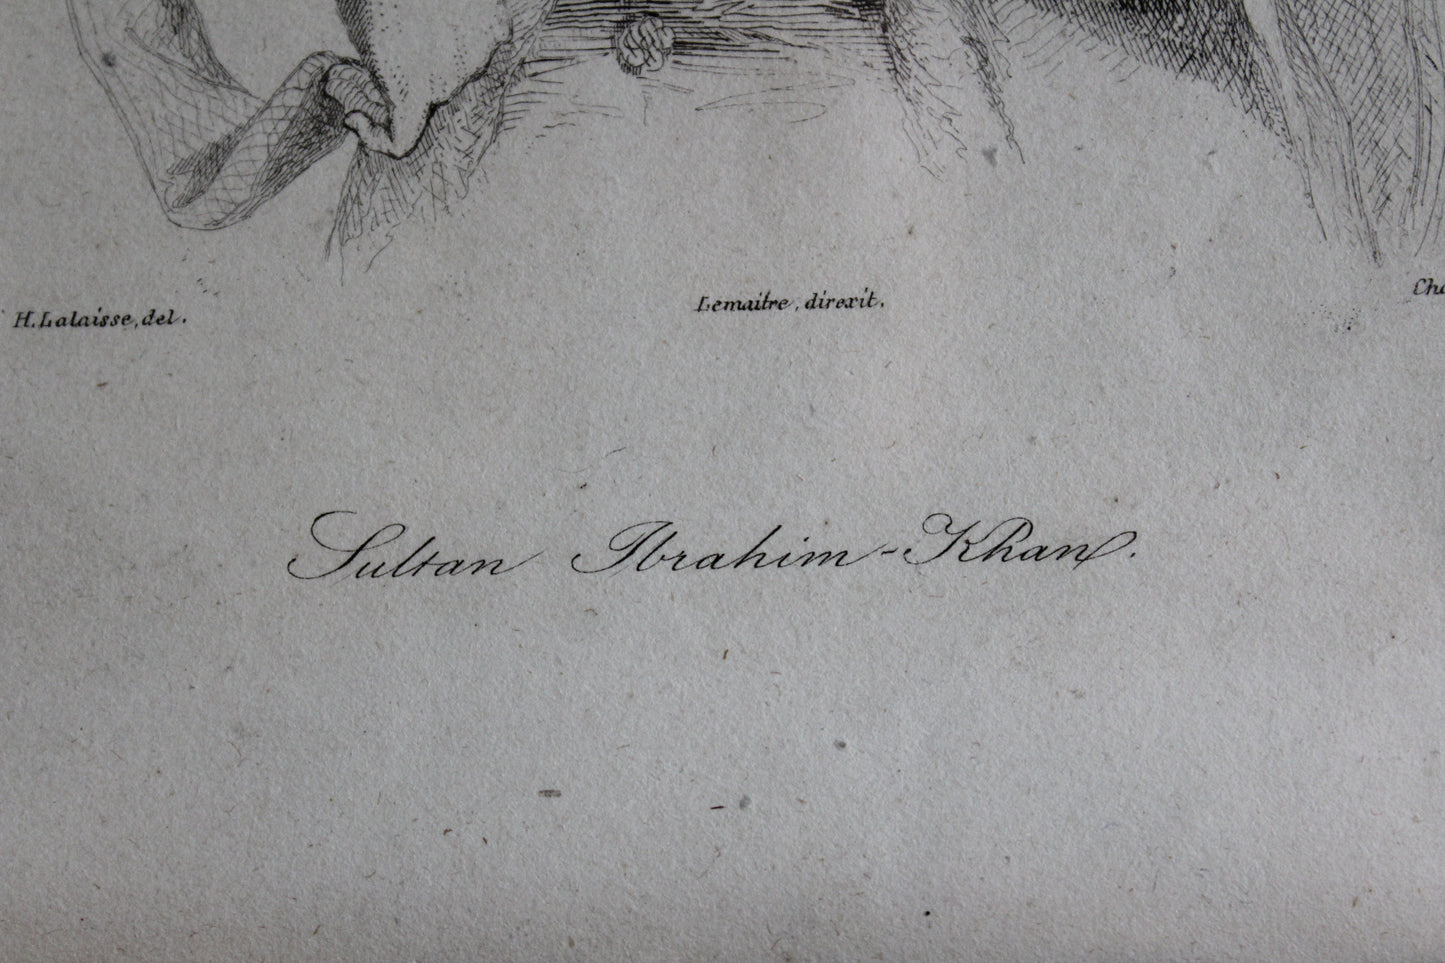 H. Lalaisse, del.
Lemaitre, direxit.
Sultan Ibrahim-Khan.